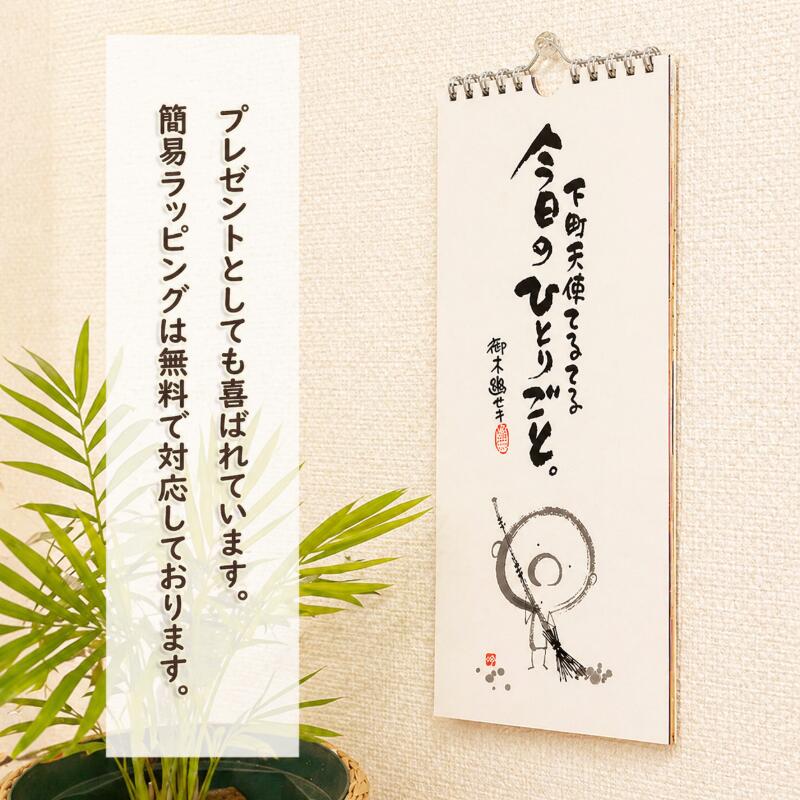 プレゼントとしても喜ばれています。
簡易ラッピングは無料で対応しております。
下町天使てるてる
今日のひとりごと。
御木幽セキ